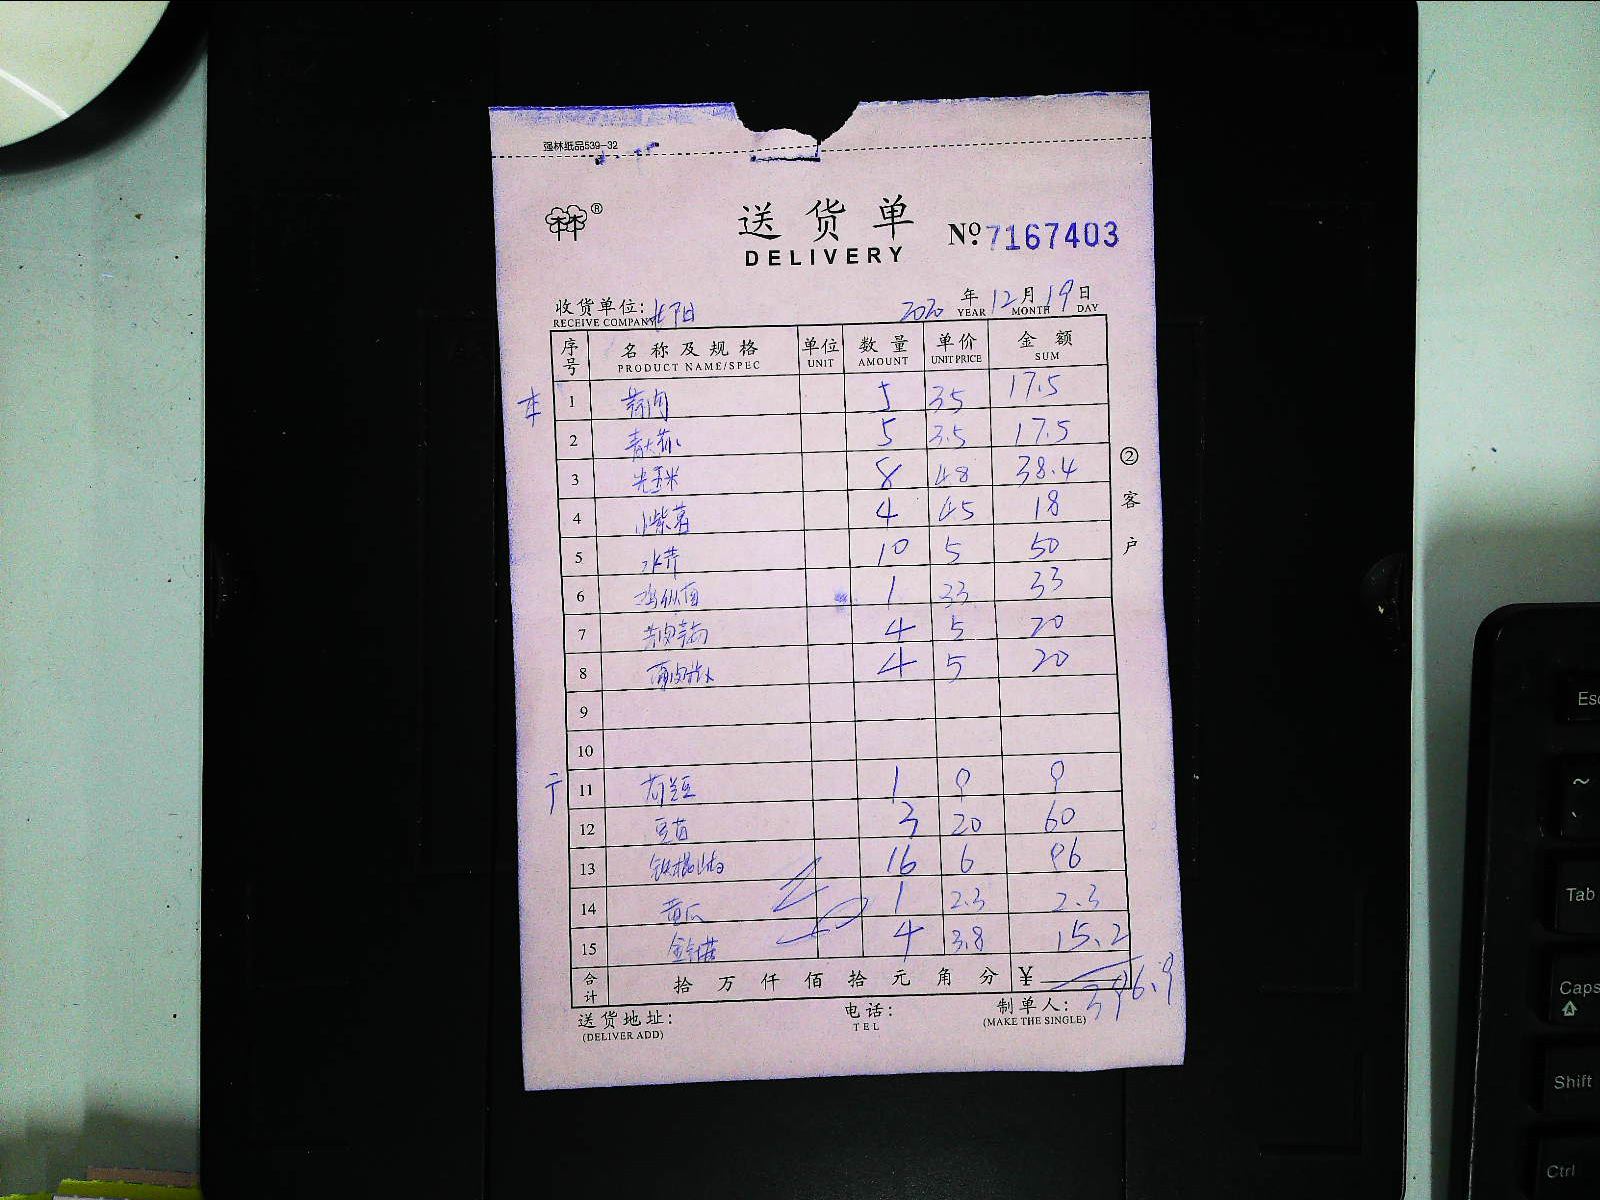 强林纸品539-32
®
送货单
DELIVERY
No.7167403
收货单位:
RECEIVE COMPANY
2020年12月19日
YEAR MONTH DAY
序号 名称及规格 单位 数量 单价 金额
PRODUCT NAME/SPEC UNIT AMOUNT UNIT PRICE SUM
1 5 35 17.5
2 5 3.5 17.5
3 玉米 8 48 38.4
4 小紫薯 4 45 18
5 水芹 10 5 50
6 1 33 33
7 4 5 20
8 4 5 20
9
10
11 荷兰豆 1 9 9
12 豆苗 3 20 60
13 铁棍山药 16 6 96
14 黄瓜 1 2.3 2.3
15 金针菇 4 3.8 15.2
合计 拾万仟佰拾元角分 ¥ 396.9
②客户
送货地址:
(DELIVER ADD)
电话:
TEL
制单人:
(MAKE THE SINGLE)
Esc
~
Tab
Caps
Shift
Ctrl